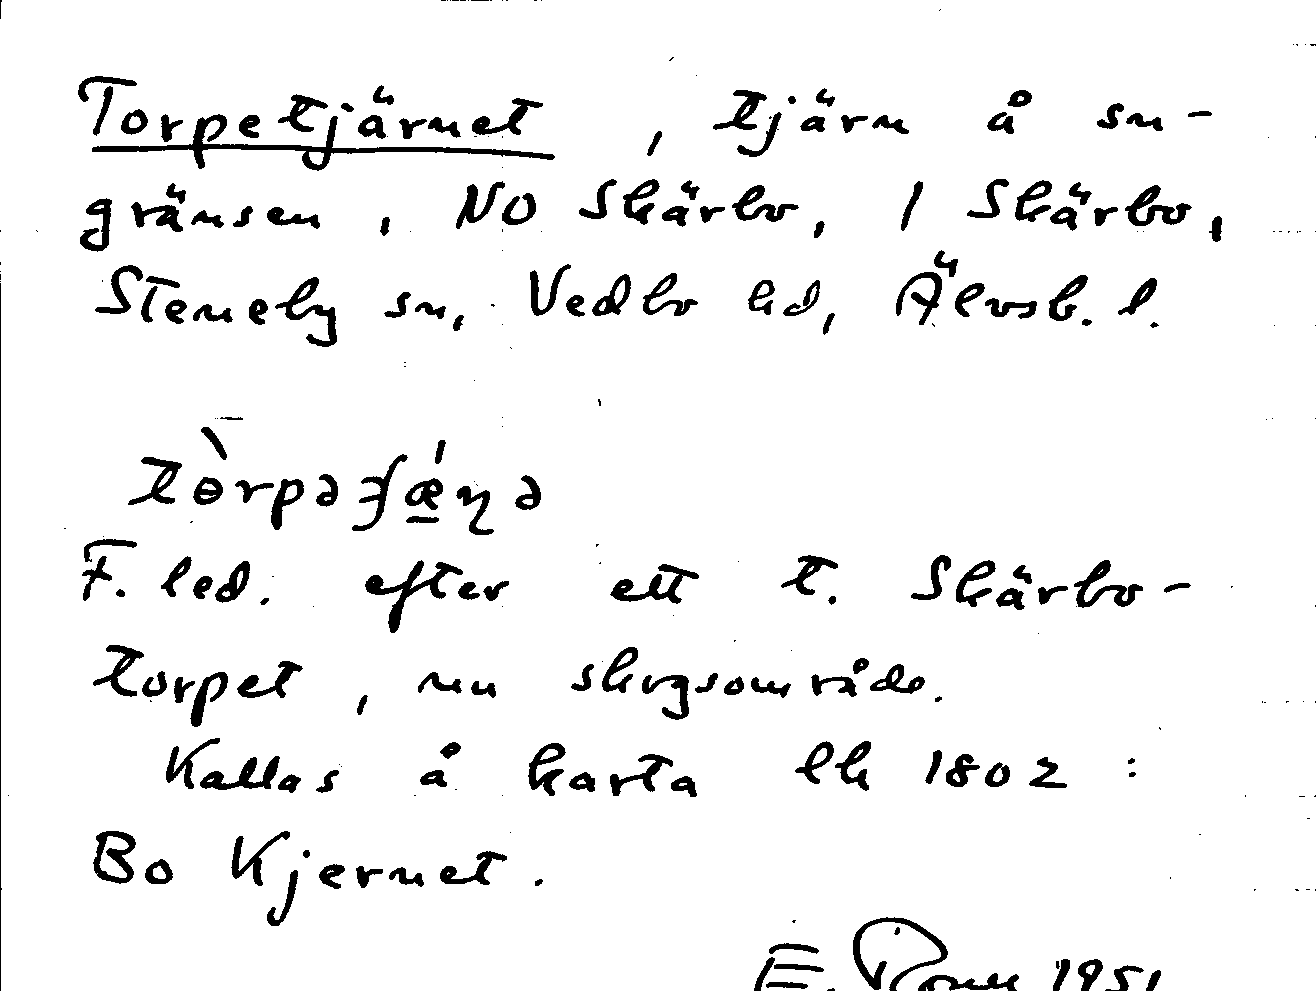 Torpetjärnet, tjärn å sn-
gränsen, NO Skärbo, 1 Skärbo,
Steneby sn, Vedbo hd, Älvsb. l.
F. led. efter ett t. Skärbo-
torpet, nu skogsområde.
Kallas å karta lk 1802:
Bo Kjernet.
E. 1951